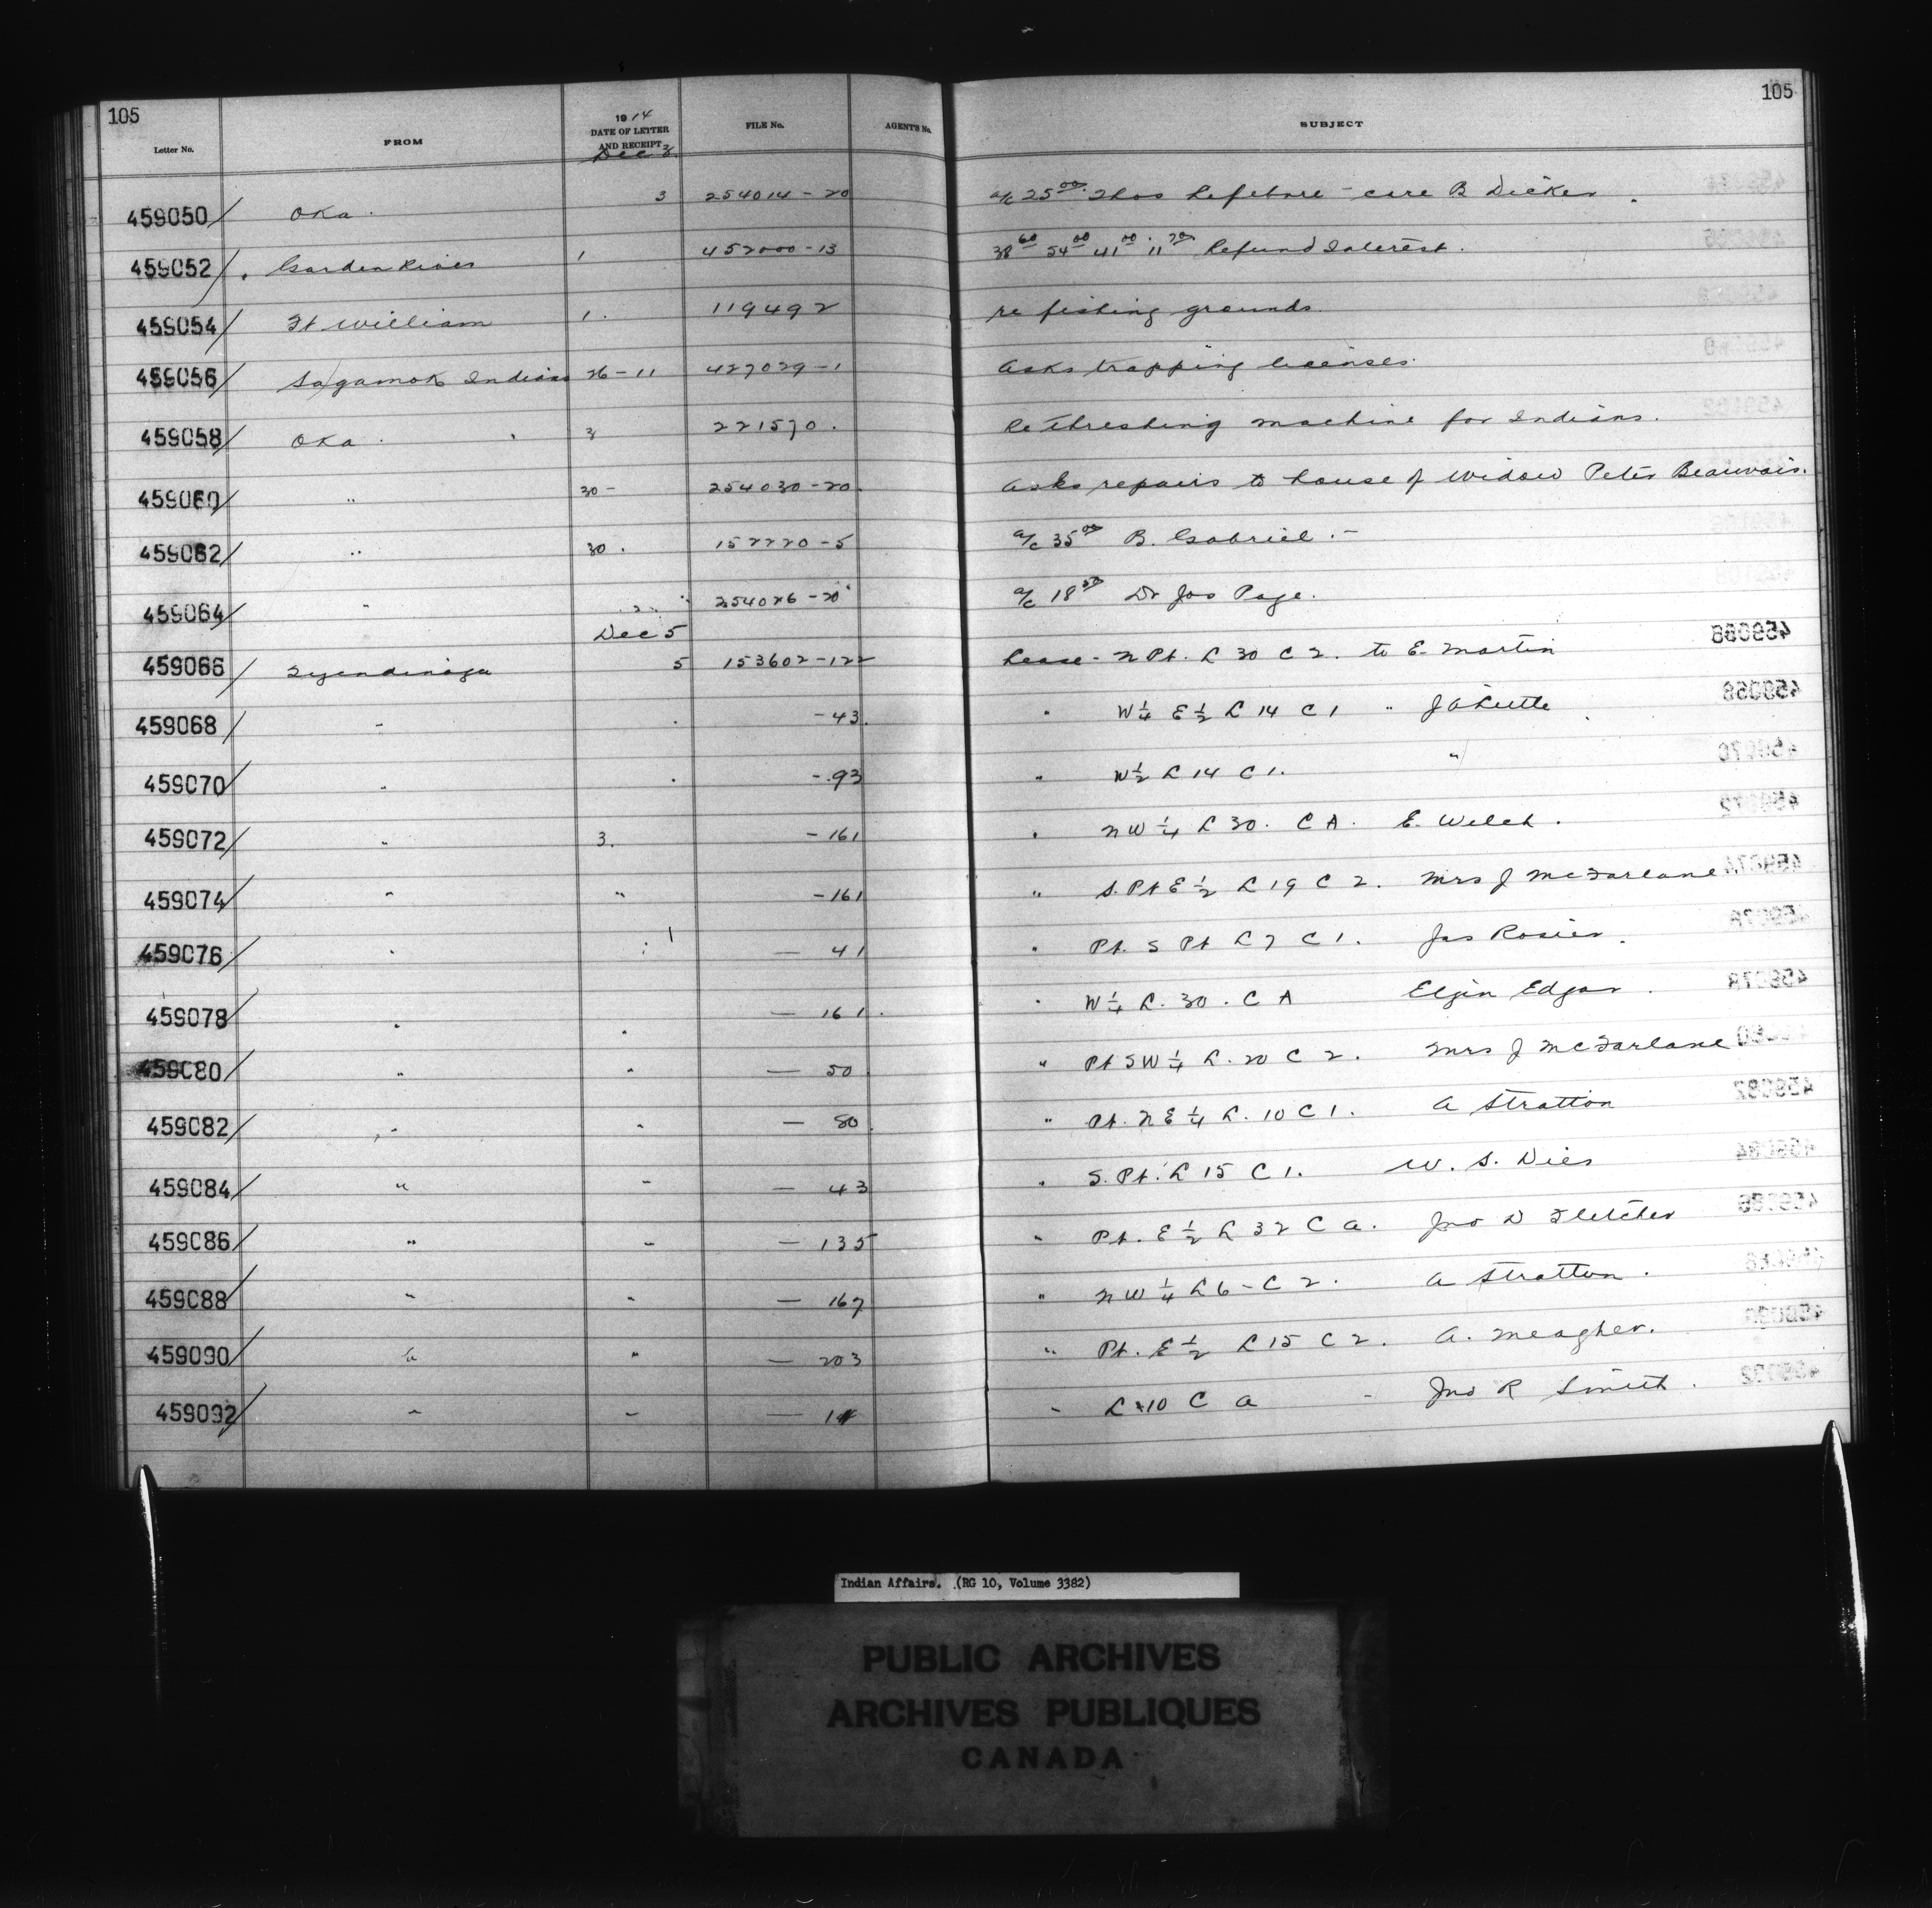 105 105
19 14
Letter No. FROM DATE OF LETTER AND RECEIPT FILE No. AGENT'S No. SUBJECT
Dec 3
459050 Oka 3 254014-20 a/c 25 00 Thos Lefebvre - care B Dicker
459052 Garden River 1 452000-13 38 60 54 00 41 00 11 70 Refund Interest.
459054 Ft William 1. 119492 re fishing grounds.
459056 Sagamok Indians 26-11 427029-1 Asks trapping licenses.
459058 Oka 3 221570. Re threshing machine for Indians.
459060 " 30- 254030-20 Asks repairs to house of Widow Peter Beauvais.
459062 " 30. 152220-5 a/c 35 00 B. Gabriel.-
459064 " " 254026-20 a/c 18 50 Dr Jos Page.
Dec 5
459066 Tyendinaga 5 153602-122 Lease - N Pt. L 30 C 2. to E. Martin
459068 " -43. " W 1/4 E 1/2 L 14 C 1 " J A Little
459070 " -93 " W 1/2 L 14 C 1. "
459072 " 3. -161 " N W 1/4 L 30. C A. E. Welch.
459074 " " -161 " S. Pt E 1/2 L 19 C 2. Mrs J McFarlane
459076 " " 1 — 41 " Pt. S Pt L 7 C 1. Jas Rosier.
459078 " " — 161. " W 1/4 L. 30. C A Elgin Edgar.
459080 " " — 50 " Pt S W 1/4 L. 20 C 2. Mrs J McFarlane
459082 " " — 80 " Pt. N E 1/4 L. 10 C 1. A Stratton
459084 " " — 43 " S. Pt. L 15 C 1. W. S. Dies
459086 " " — 135 " Pt. E 1/2 L 32 C A. Jno D Fletcher
459088 " " — 167 " N W 1/4 L 6 - C 2. A Stratton.
459090 " " — 203 " Pt. E 1/2 L 15 C 2. A. Meagher.
459092 " " — " L 10 C A - Jno R Smith.
Indian Affairs. (RG 10, Volume 3382)
PUBLIC ARCHIVES
ARCHIVES PUBLIQUES
CANADA